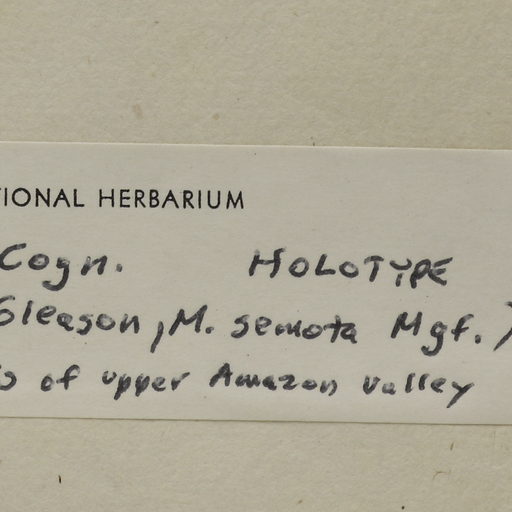 TIONAL HERBARIUM
Cogn. HOLOTYPE
Gleason, M. semota Mgf.)
s of upper Amazon valley